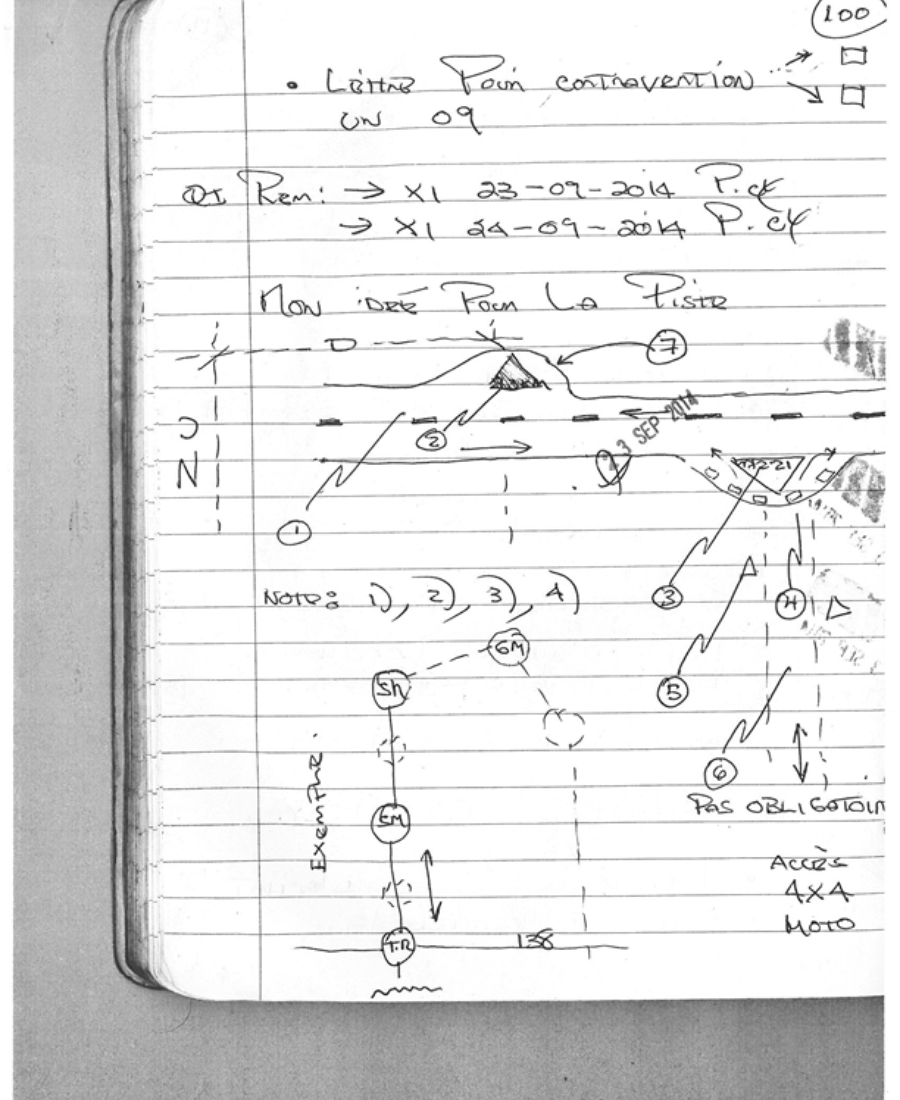 100
• Lettre Pour contravention
un 09
QI Rem: → X1 23-09-2014 P.
→ X1 24-09-2014 P.
Mon idée Pour La Piste
D
7
23 SEP 2014
2
N
1
3
4
Note: 1), 2), 3), 4)
6M
Sh
5
6
Pas obligatoir
Exemple.
5M
Accès
4x4
Moto
T.R
138